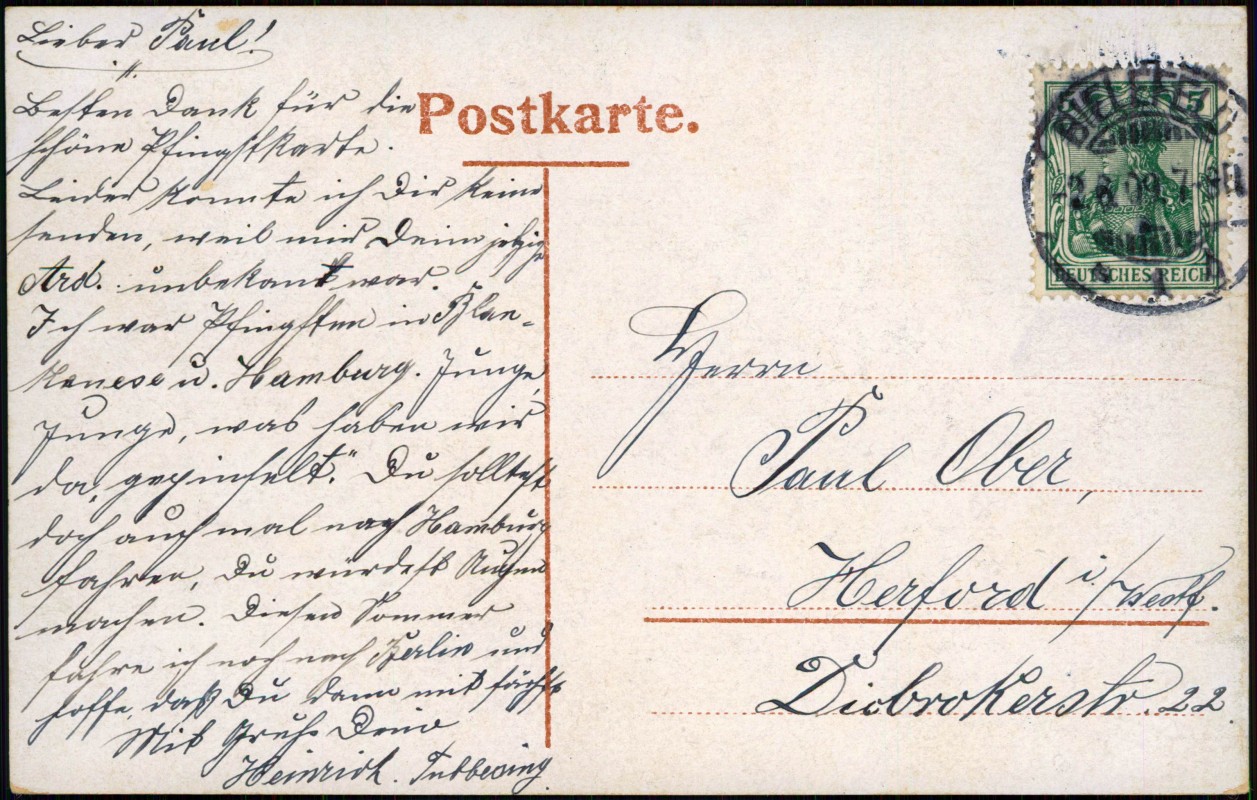 Lieber Paul!
Besten Dank für die
schöne Pfingstkarte.
Leider konnte ich Dir keine
senden, weil mir Deine jetzige
Ard. unbekannt war.
Ich war Pfingsten in Blan-
kenese u. Hamburg. Junge,
Junge, was haben wir
da „gepinselt." Du solltest
doch auch mal nach Hamburg
fahren, Du würdest Augen
machen. Diesen Sommer
fahre ich noch nach Berlin und
hoffe, daß Du dann mit fährst
Mit Gruß Dein
Heinrich.
Postkarte.
5
BIELEFELD
2.6.09.7
1
DEUTSCHES REICH
Herrn
Paul Ober,
Herford i/Westf.
Diebrokerstr. 22